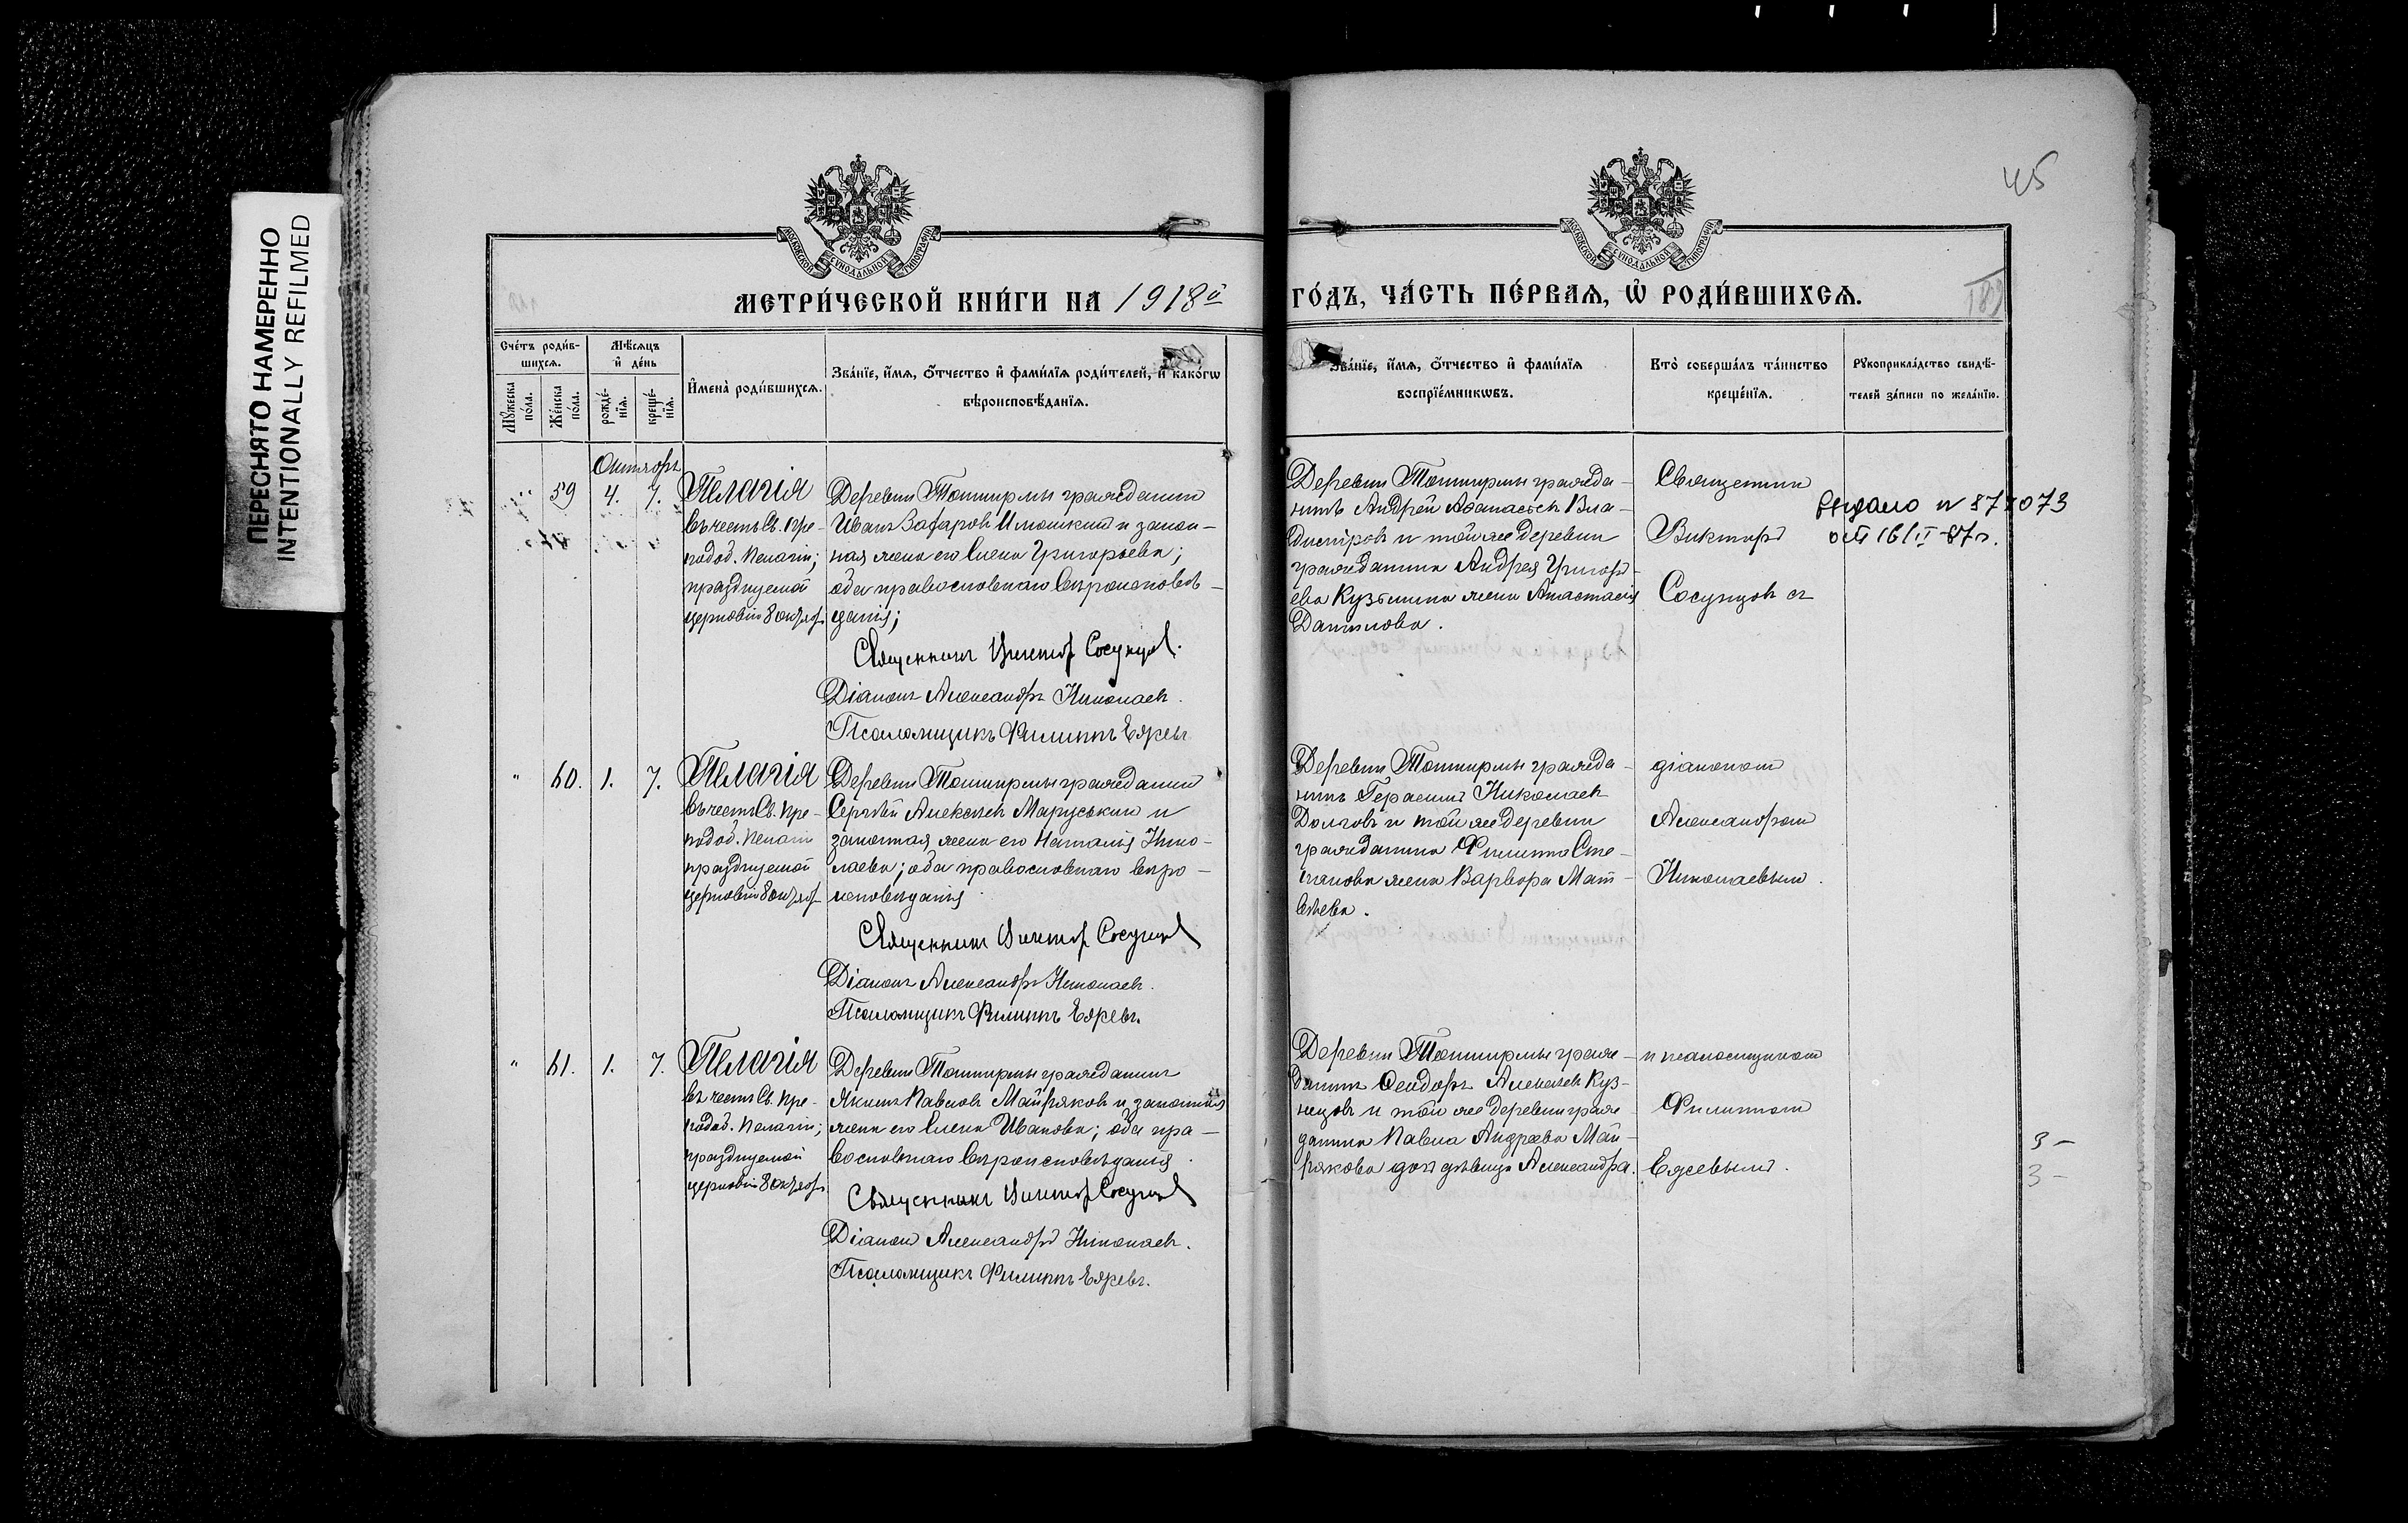 ПЕРЕСНЯТО НАМЕРЕННО
INTENTIONALLY REFILMED
45
МОСКОВСКОЙ СУНОДАЛЬНОЙ ТИПОГРАФІИ
МОСКОВСКОЙ СУНОДАЛЬНОЙ ТИПОГРАФІИ
МЕТРИ́ЧЕСКОЙ КНИ́ГИ НА 1918й
ГО́ДЪ, ЧА́СТЬ ПЕ́РВАЯ, Ѡ҆ РОДИ́ВШИХСѦ.
Сче́тъ роди́в-
шихсѧ.
Мꙋ́жеска по́ла.
Же́нска по́ла.
Мѣ́сѧцъ
и҆ де́нь
рожде́-нїѧ.
креще́-нїѧ.
И҆мена̀ роди́вшихсѧ.
Зва́нїе, и҆́мѧ, ѻ҆́тчество и҆ фами́лїѧ роди́телей, и҆ како́гѡ
вѣроисповѣ́данїѧ.
Зва́нїе, и҆́мѧ, ѻ҆́тчество и҆ фами́лїѧ
воспрїе́мникѡвъ.
Кто̀ соверша́лъ та́инство
креще́нїѧ.
Рꙋкоприкла́дство свидѣ́-
телей за́писи по жела́нїю.
Октябрь
59 4. 7. Пелагія
въ честь Св. Пре-
подоб. Пелагіи;
празднуемой
церковію 8 октяб.
Деревни Тошкирмы гражданин
Иванъ Захаровъ и закон-
ная жена его Елена Григорьева;
оба православнаго вѣроисповѣ-
данія;
Священникъ Виктор Сосунцов.
Діаконъ Александръ Николаевъ.
Псаломщикъ Филиппъ
Деревни Тошкирмы гражда-
нинъ Андрей Афанасьевъ
и той же деревни
гражданина Андрея Григорь-
ева Кузьмина жена Анастасія
Данилова.
Священник
Викторъ
Сосунцов съ
выдано
60. 1. 7. Пелагія
въ честь Св. Пре-
подоб. Пелагіи
празднуемой
церковію 8 октяб.
Деревни Тошкирмы гражданин
Сергѣй Алексѣев Маруськин и
законная жена его Наталія Нико-
лаева; оба православнаго вѣро-
исповѣданія
Священник Виктор Сосунцов
Діаконъ Александръ Николаевъ.
Псаломщикъ Филиппъ
Деревни Тошкирмы гражда-
нинъ Герасимъ Николаев
Долговъ и той же деревни
гражданина Филиппа Сте-
панова жена Варвара Мат-
вѣева.
діаконом
Александром
Николаевым.
61. 1. 7. Пелагія
въ честь Св. Пре-
подоб. Пелагіи;
празднуемой
церковію 8 октяб.
Деревни Тошкирмы гражданинъ
Якимъ Павловъ Майряков и законная
жена его Елена Иванова; оба пра-
вославнаго вѣроисповѣданія.
Священникъ Виктор Сосунцов
Діакон Александръ Николаевъ.
Псаломщикъ Филиппъ
Деревни Тошкирмы граж-
данинъ Ѳеодоръ Алексѣев Куз-
нецовъ и той же деревни граж-
данина Павла Андреева Май-
рякова дочь дѣвица Александра.
и псаломщиком
Филиппом
3 -
3 -